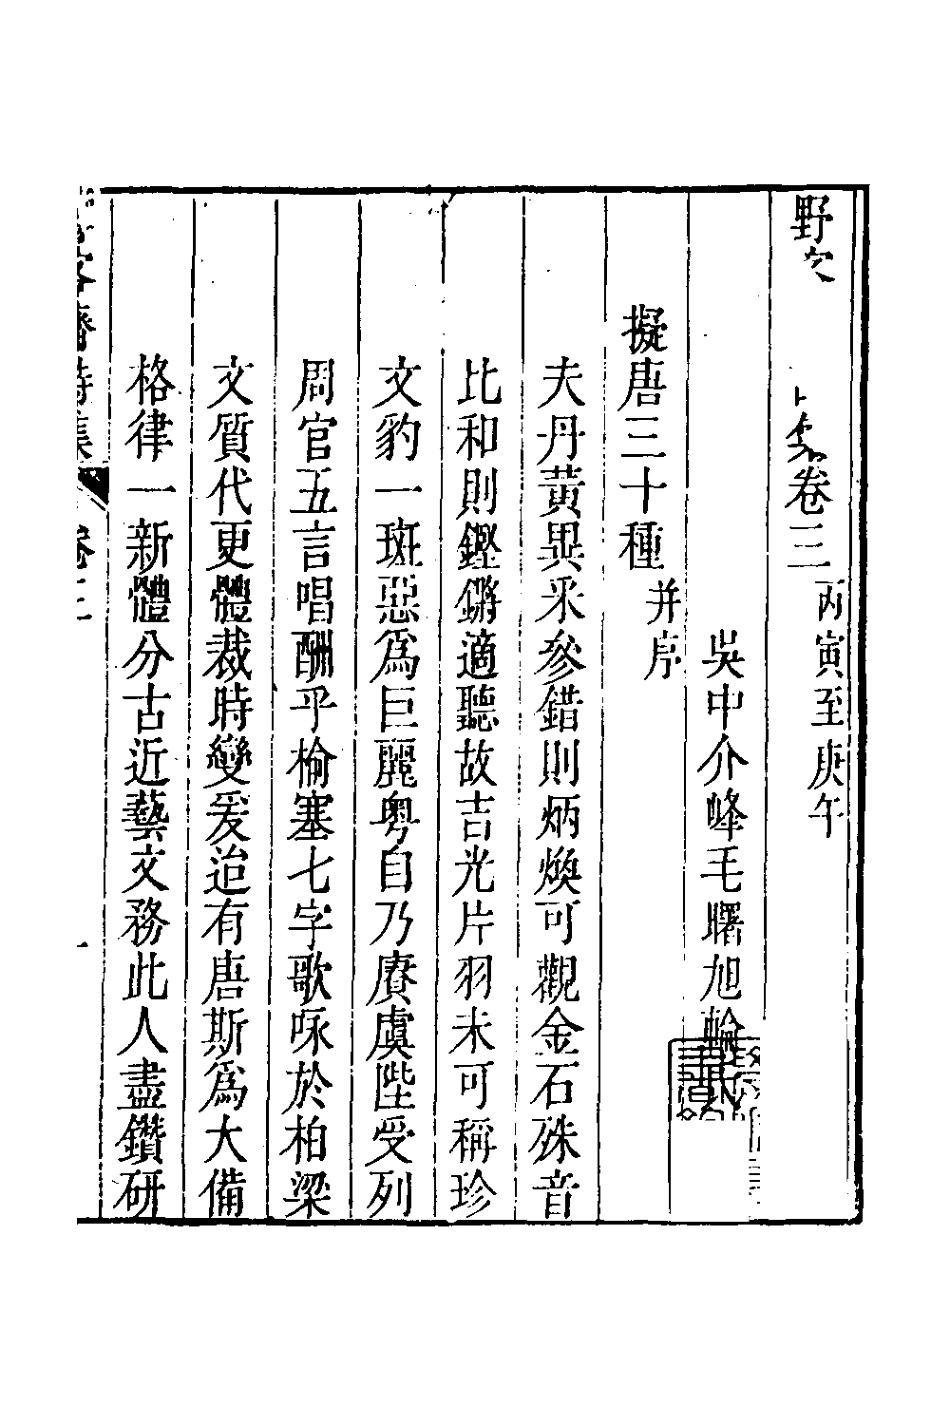 野
卷三丙寅至庚午
吳中介峰毛曙旭輪
擬唐三十種并序
夫丹黃異釆參錯則炳煥可觀金石殊音
比和則鏗鏘適聽故吉光片羽未可稱珍
文豹一斑惡爲巨麗粤自乃賡虞陛受列
周官五言唱酬乎榆塞七字歌咏於柏梁
文質代更體裁時變爰迨有唐斯爲大備
格律一新體分古近藝文務此人盡鑽研
客齋詩集 卷三 一